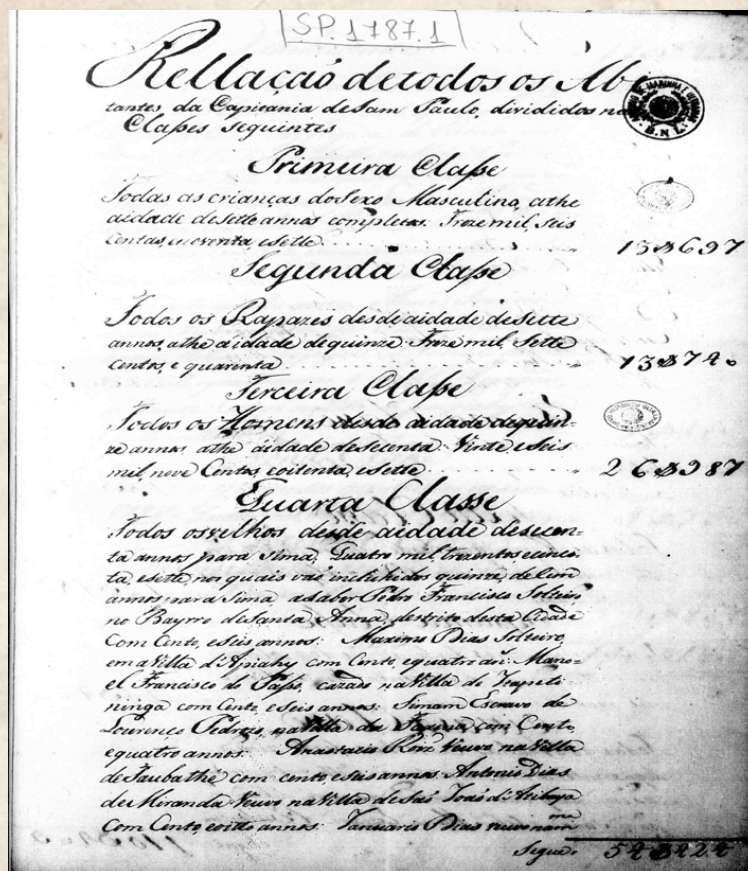 SP.1787.1
Rellação de todos os Ab
tantes da Capitania de Sam Paulo, divididos nas
Clases seguintes
Primeira Clase
Todas as crianças do Sexo Masculino, athe
aidade de sette annos completos. Treze mil, seis
Centas, e noventa, e sette 13$697
Segunda Clase
Todos os Rapazes desde aidade de Sette
annos, athe aidade de quinze. Treze mil, Sette
Centos, e quarenta 13$740
Terceira Clase
Todos os Homens desde aidade de quin-
ze annos, athe aidade de secenta. Vinte, e seis
mil, nove Centos, e oitenta, e sette 26$987
Quarta Classe
Todos os velhos desde aidade de secen-
ta annos para Sima, Quatro mil trezentos e cinco,
ta, e sette, nos quais vaõ incluhidos quinze, de Cem
annos para Sima a saber Pedro Francisco Solteiro
no Bayrro de Santa Anna, destrito desta Cidade
Com Cento, e Seis annos: Maximo Dias Solteiro,
em a Villa d'Apiahy com Cento, e quatro an: Mano-
el Francisco do Passo, cazado na Villa de Itapeti-
ninga com Cento, e Seis annos: Simam Escravo de
Lourenço na Villa da com Cento,
e quatro annos: Anastacio Viuvo na Villa
de Taubathé com cento e seis annos: Antonio Dias
de Miranda Viuvo na Villa de Saõ Joaõ d'Atibaya
Com Cento, e oito annos: Januario Dias viuvo na m.ma
Segue 54$424